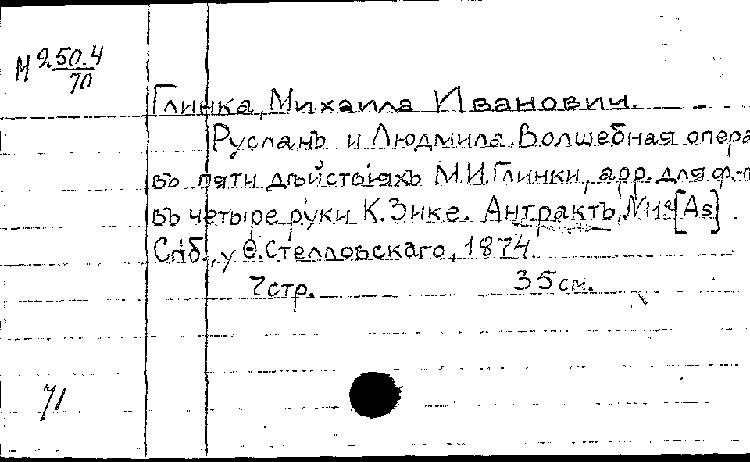 М 250.4
70
Глинка, Михаила Иванович.
Русланъ и Людмила. Волшебная опера
въ пяти дѣйствіяхъ М.И.Глинки, арр. для ф.-п
въ четыре руки К. Зике. Антрактъ, №18 [As].
Спб., у Ѳ. Стелловскаго, 1874
7 стр. 35 см.
71